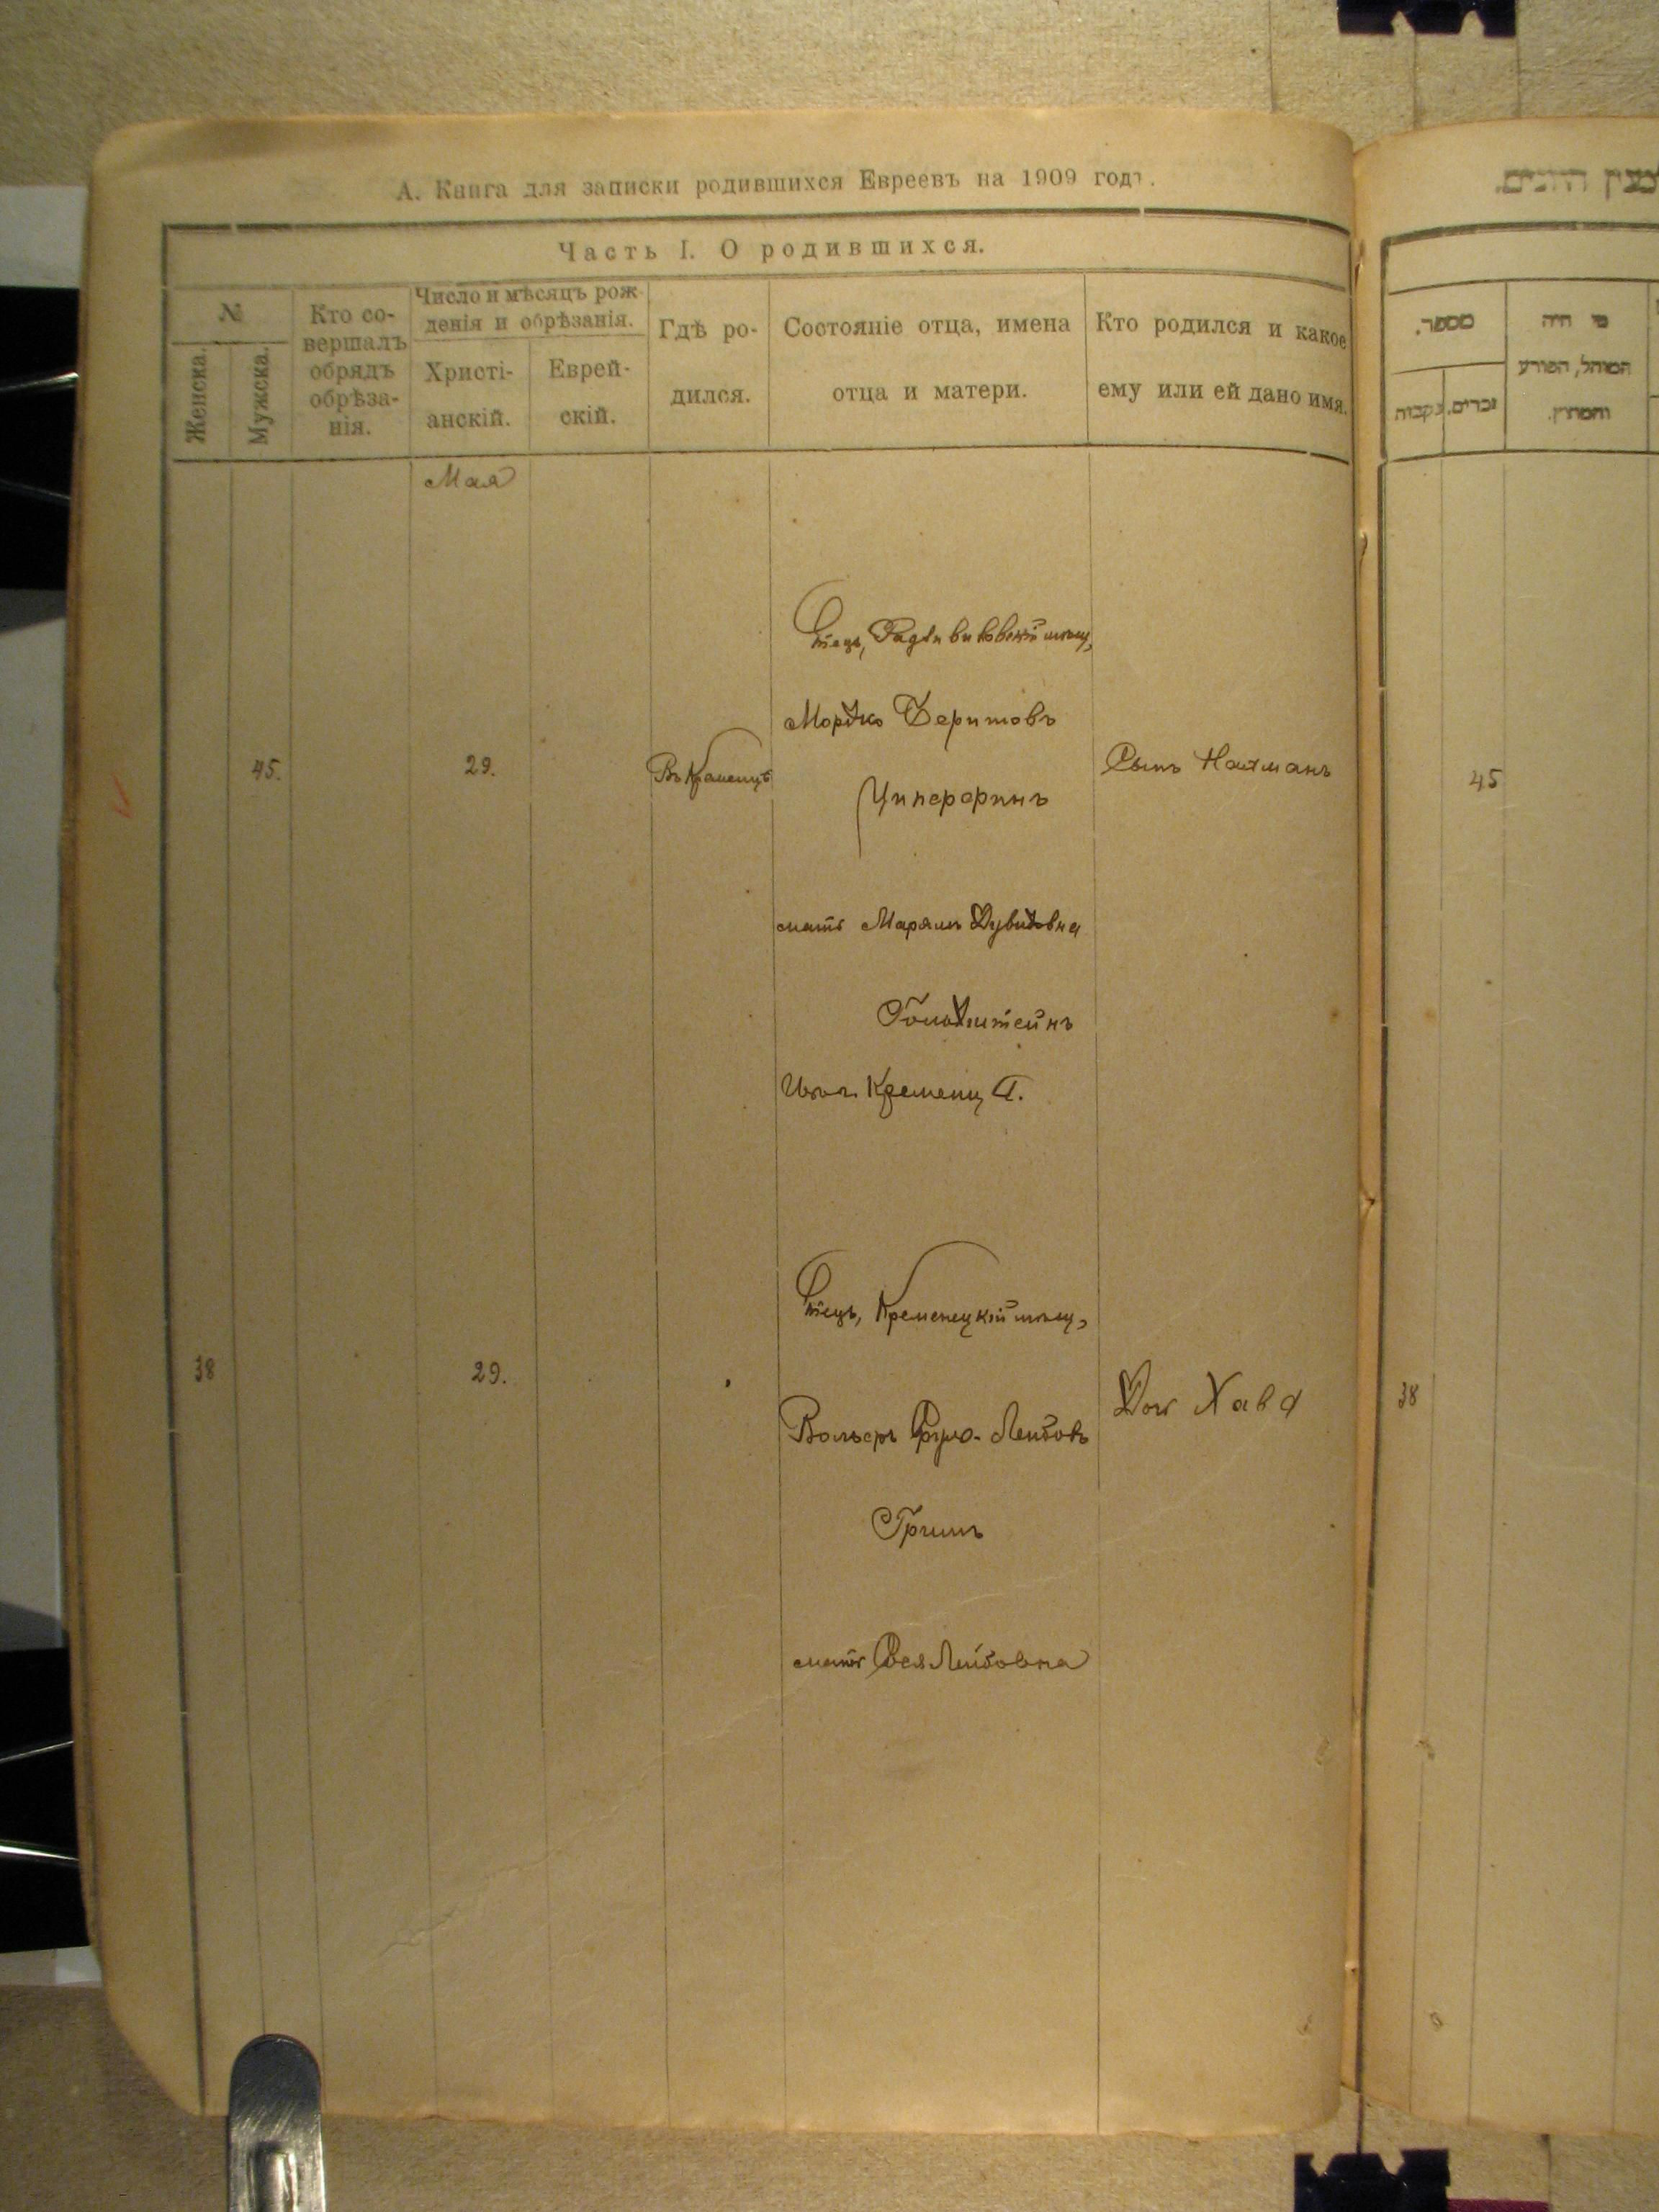 А. Книга для записки родившихся Евреевъ на 1909 годъ.
Часть I. О родившихся.
№
Женска.
Мужска.
Кто со-
вершалъ
обрядъ
обрѣза-
нія.
Число и мѣсяцъ рож-
денія и обрѣзанія.
Христі-
анскій.
Еврей-
скій.
Гдѣ ро-
дился.
Состояніе отца, имена
отца и матери.
Кто родился и какое
ему или ей дано имя.
Мая
45.
29.
Въ Кременцѣ
Отецъ, Радзивиловскій мѣщ,
Мордко Беришовъ
Циперфинъ
мать Марямъ Дувидовна
Гольдштейнъ
Кременц
Сынъ Нахманъ
38
29.
Отецъ, Кременецкій мѣщ,
Вольфъ Лейбовъ
мать Лейбовна
Дочь Хава
מספר.
נקבות
זכרים.
מי היה
המוהל, הפורע
והמוצץ.
45
38